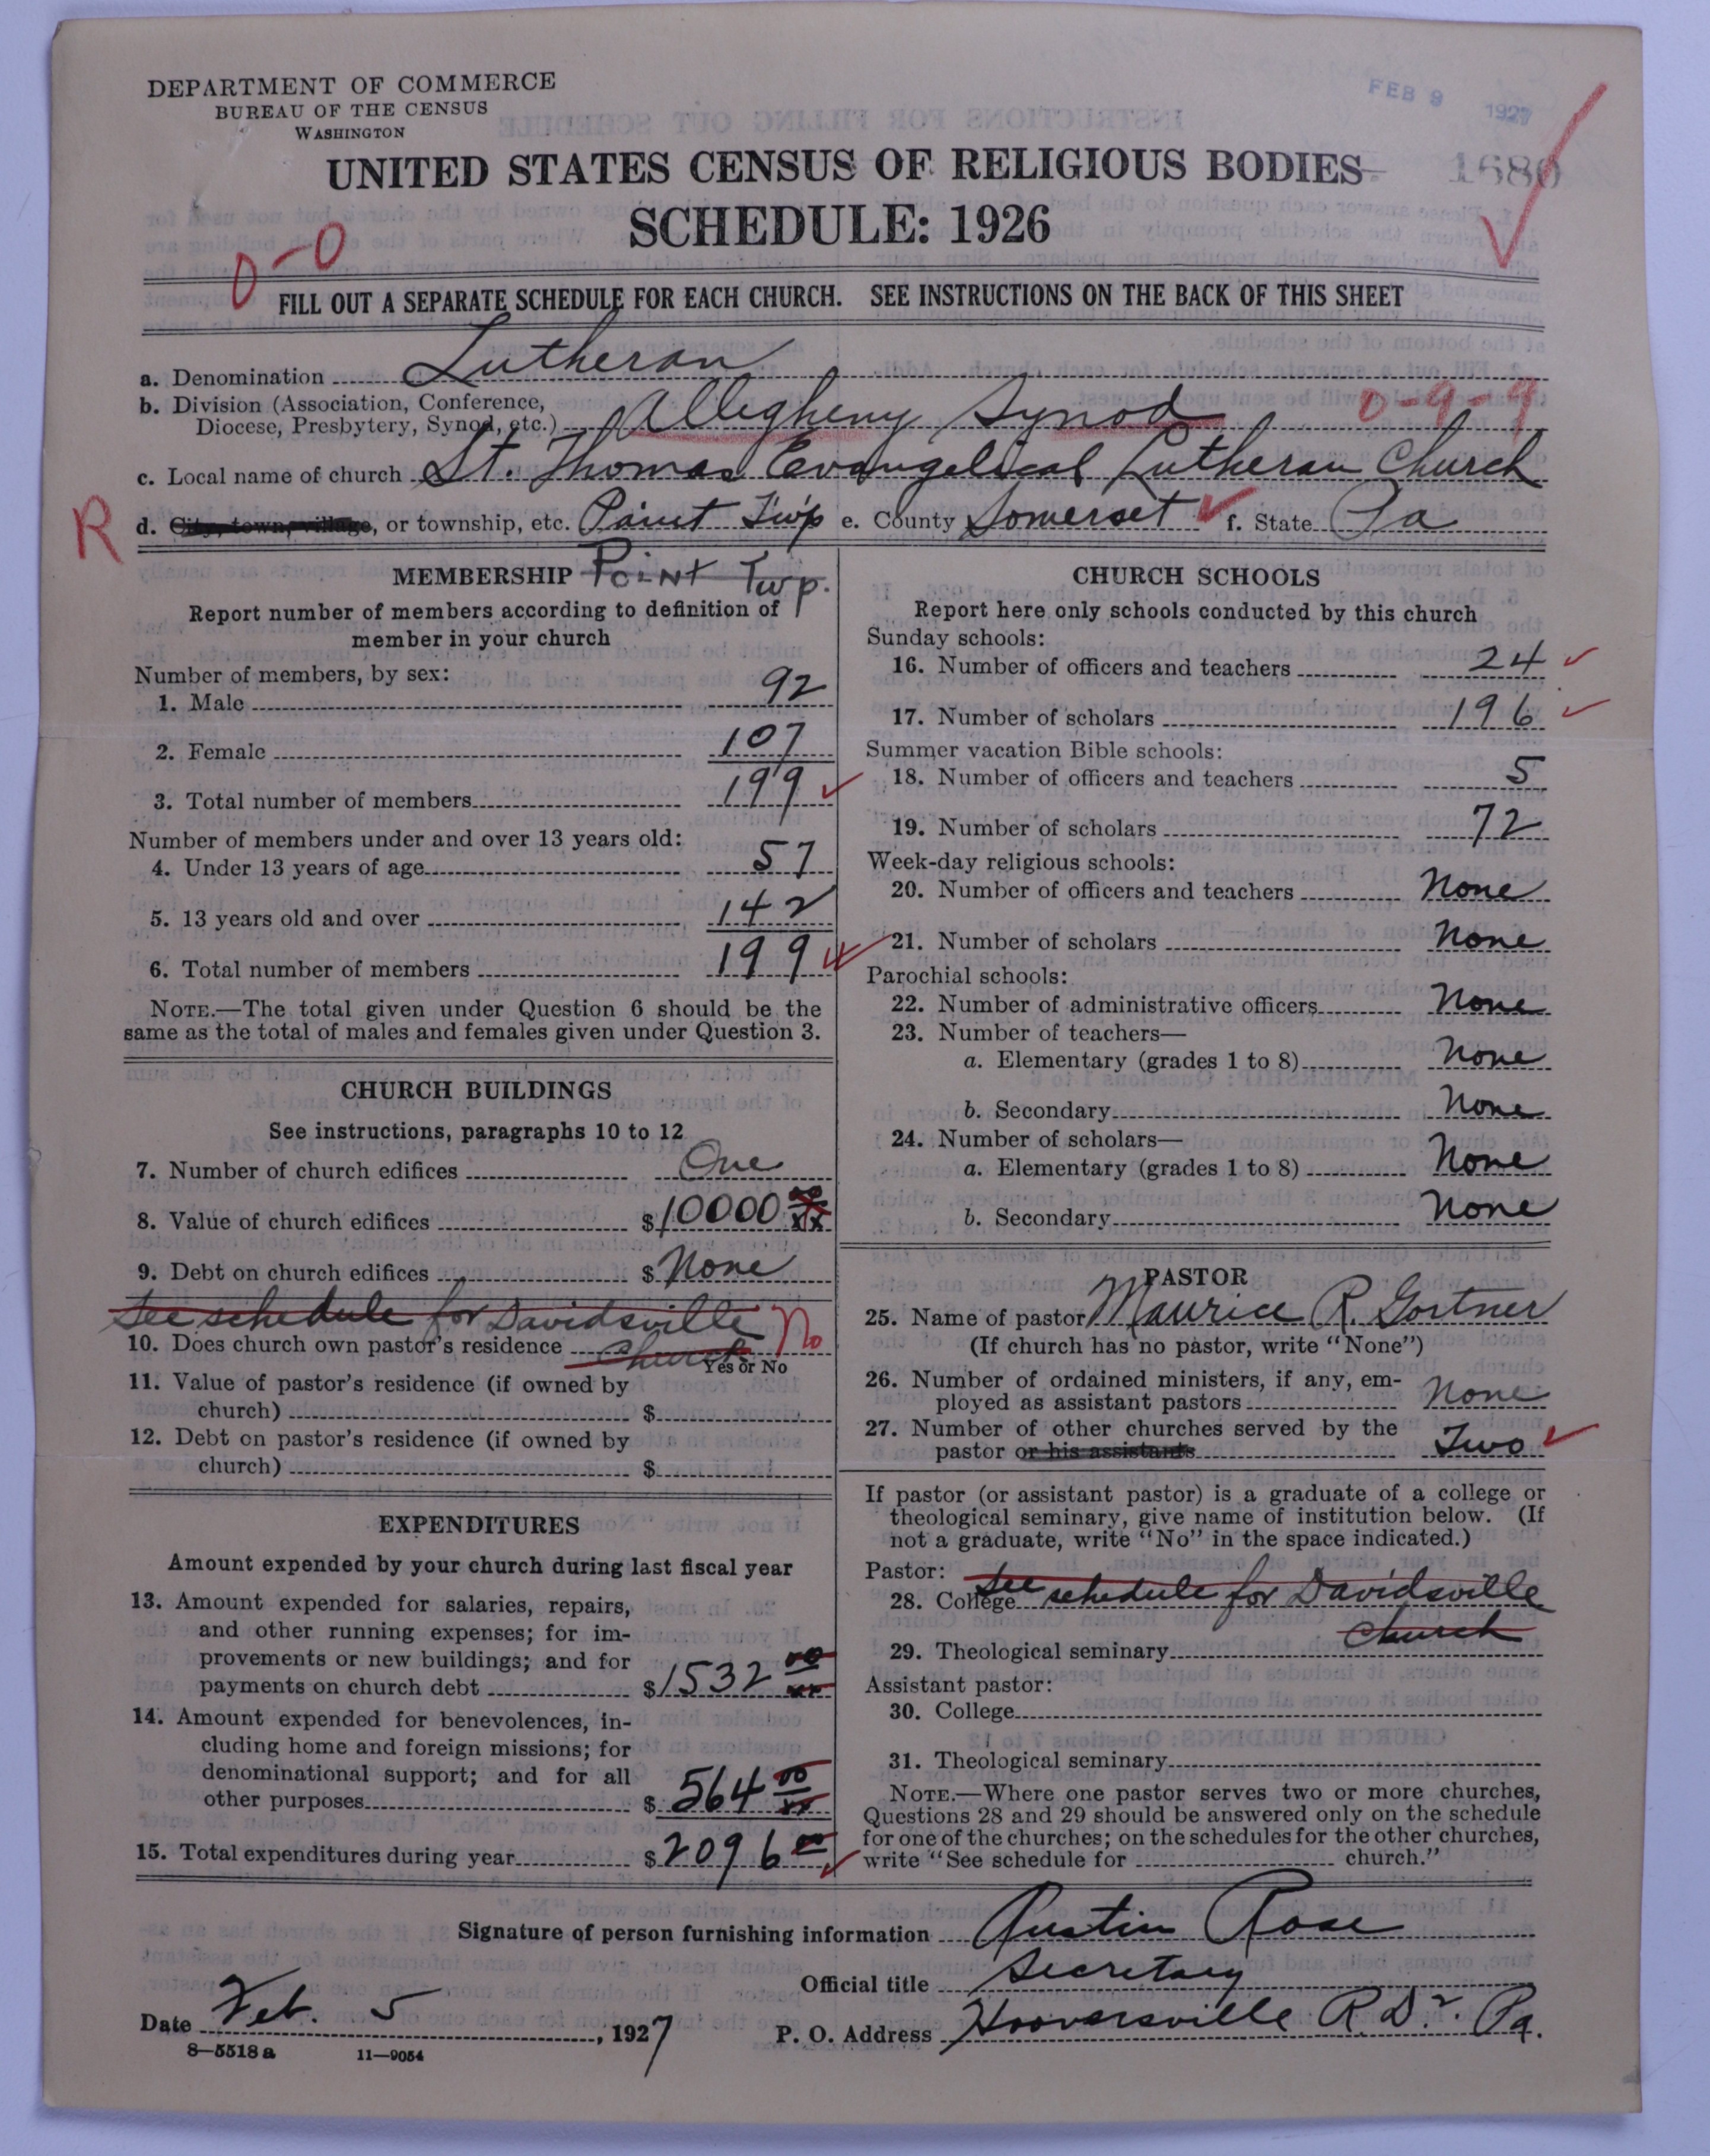 DEPARTMENT OF COMMERCE
BUREAU OF THE CENSUS
WASHINGTON
FEB 9 1927
UNITED STATES CENSUS OF RELIGIOUS BODIES
1680
SCHEDULE: 1926
0-0
FILL OUT A SEPARATE SCHEDULE FOR EACH CHURCH. SEE INSTRUCTIONS ON THE BACK OF THIS SHEET
a. Denomination Lutheran
b. Division (Association, Conference, Diocese, Presbytery, Synod, etc.) Allegheny Synod 0-9-9
c. Local name of church St. Thomas Evangelical Lutheran Church
R d. City, town, village, or township, etc. Paint Twp e. County Somerset f. State Pa
MEMBERSHIP Point Twp.
Report number of members according to definition of
member in your church
Number of members, by sex:
1. Male 92
2. Female 107
3. Total number of members 199
Number of members under and over 13 years old:
4. Under 13 years of age 57
5. 13 years old and over 142
6. Total number of members 199
NOTE.—The total given under Question 6 should be the
same as the total of males and females given under Question 3.
CHURCH BUILDINGS
See instructions, paragraphs 10 to 12
7. Number of church edifices One
8. Value of church edifices $10000 00
9. Debt on church edifices $ None
See schedule for Davidsville
10. Does church own pastor's residence Church No
Yes or No
11. Value of pastor's residence (if owned by
church) $
12. Debt on pastor's residence (if owned by
church) $
EXPENDITURES
Amount expended by your church during last fiscal year
13. Amount expended for salaries, repairs,
and other running expenses; for im-
provements or new buildings; and for
payments on church debt $1532 00
14. Amount expended for benevolences, in-
cluding home and foreign missions; for
denominational support; and for all
other purposes $ 564 00
15. Total expenditures during year $2096 00
CHURCH SCHOOLS
Report here only schools conducted by this church
Sunday schools:
16. Number of officers and teachers 24
17. Number of scholars 196
Summer vacation Bible schools:
18. Number of officers and teachers 5
19. Number of scholars 72
Week-day religious schools:
20. Number of officers and teachers None
21. Number of scholars None
Parochial schools:
22. Number of administrative officers None
23. Number of teachers—
a. Elementary (grades 1 to 8) None
b. Secondary None
24. Number of scholars—
a. Elementary (grades 1 to 8) None
b. Secondary None
PASTOR
25. Name of pastor Maurice R. Gortner
(If church has no pastor, write "None")
26. Number of ordained ministers, if any, em-
ployed as assistant pastors None
27. Number of other churches served by the
pastor or his assistants Two
If pastor (or assistant pastor) is a graduate of a college or
theological seminary, give name of institution below. (If
not a graduate, write "No" in the space indicated.)
Pastor:
28. College See schedule for Davidsville
Church
29. Theological seminary
Assistant pastor:
30. College
31. Theological seminary
NOTE.—Where one pastor serves two or more churches,
Questions 28 and 29 should be answered only on the schedule
for one of the churches; on the schedules for the other churches,
write "See schedule for church."
Signature of person furnishing information Austin Rose
Official title Secretary
Date Feb. 5, 1927 P. O. Address Hooversville R.D 2. Pa.
8—5518 a 11—9054